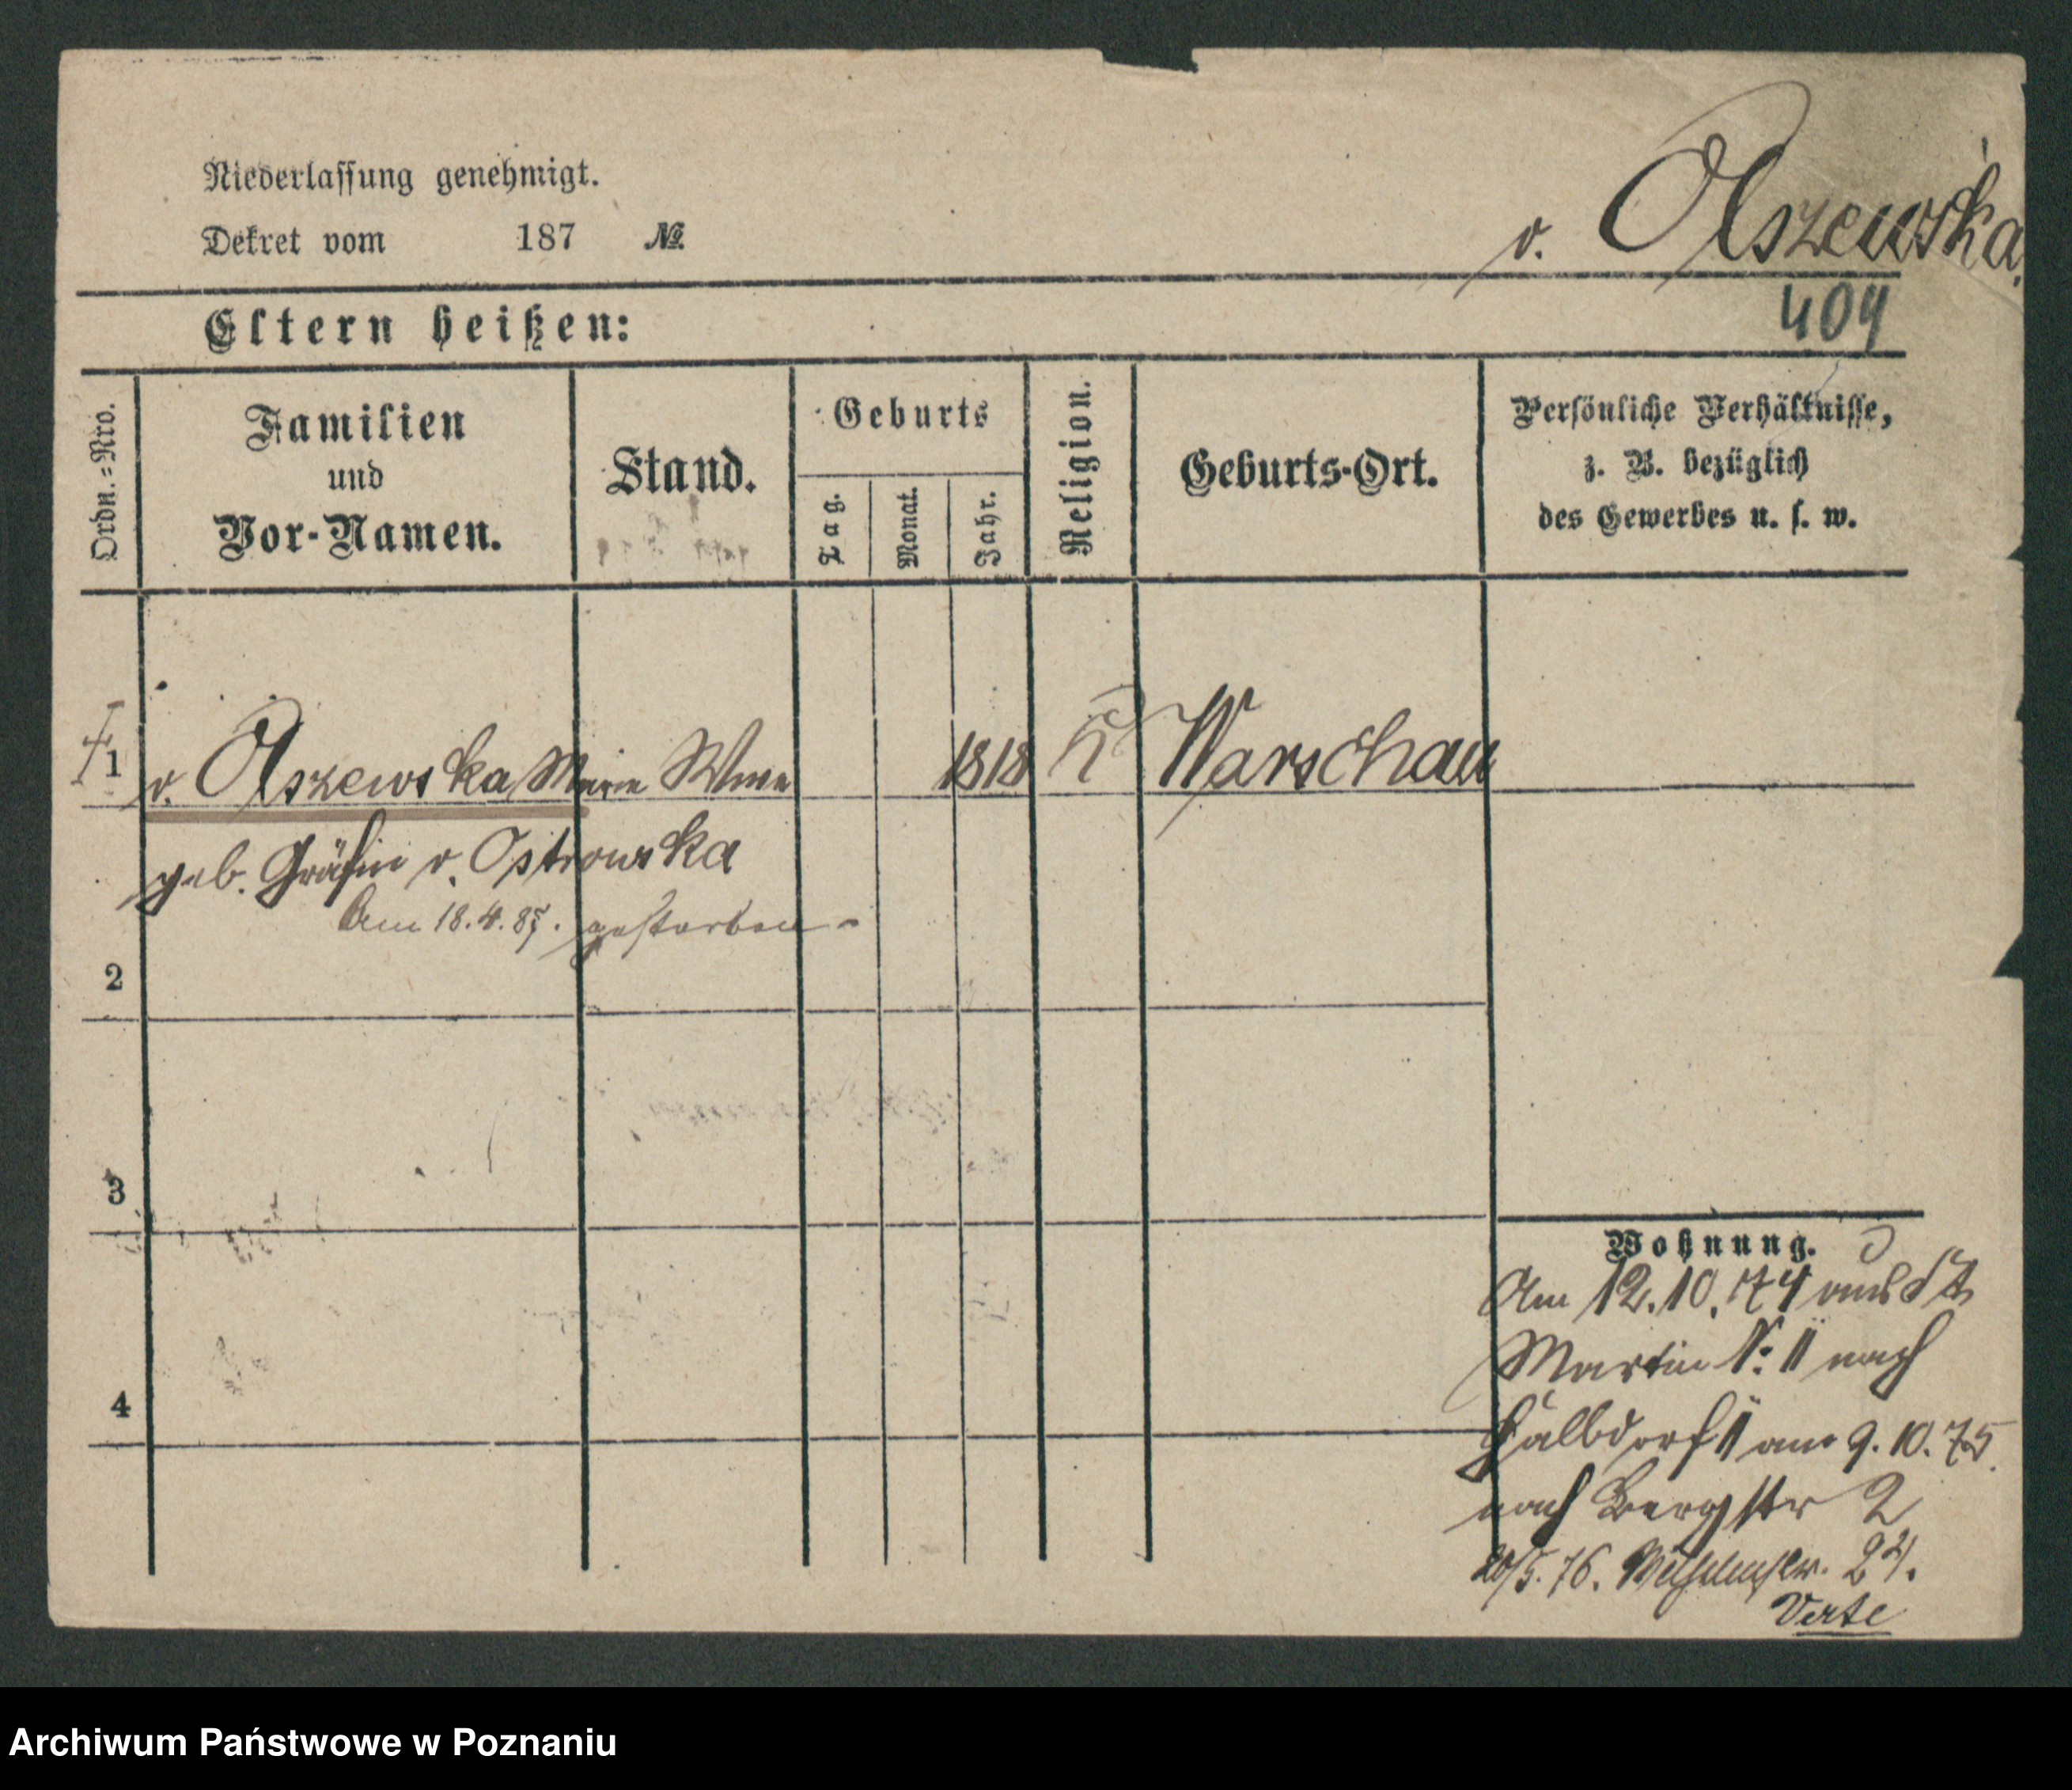 Niederlassung genehmigt.
Dekret vom 187 №
v. Olszewska.
404
Eltern heißen:
Ordn.=Nro.
Familien
und
Vor-Namen.
Stand.
Geburts
Tag.
Monat.
Jahr.
Religion.
Geburts-Ort.
Persönliche Verhältnisse,
z. B. bezüglich
des Gewerbes u. s. w.
1 v. Olszewska Marie Wwe 1818 k Warschau
geb. Gräfin v. Ostrowska
Am 18.4.85. gestorben
2
3
4
Wohnung.
Am 12.10.74 aus St
Martin N: 11 nach
Halbdorf 11 am 9.10.75.
nach Bergstr 2
20/5.76. Wilhelmstr. 24.
Verte
Archiwum Państwowe w Poznaniu